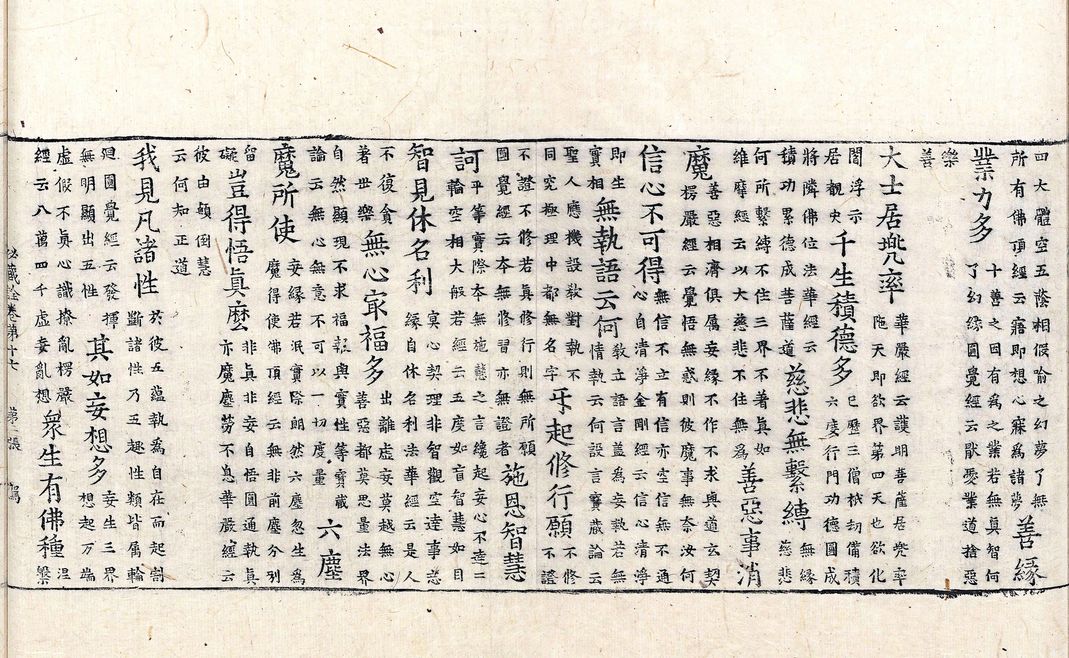 四大體空五蔭相假喻之幻夢了無
所有佛頂經云寤即想心寐為諸夢
善緣
業力多
十善之因有為之業若無真智何
了幻緣圓覺經云厭憂業道捨惡
樂
善
大士居兠率
華嚴經云護明菩薩居兠率
陁天即欲界第四天也欲化
閻浮示
居覩史
千生積德多
已歷三僧祇劫備積
六度行門功德圓成
將隣佛位法華經云
積功累德成菩薩道
慈悲無繫縛
無緣
慈悲
何所繫縛不住三界不著真如
維摩經云以大慈悲不住無為
善惡事消
魔
善惡相濟俱属妄緣不作不求與道玄契
楞嚴經云覺悟無惑則彼魔事無奈汝何
信心不可得
無信不立有信亦空信無不通
心自清淨金剛經云信心清淨
即生
實相
無執語云何
教立語言盖為妄執若無
情執云何設言寶蔵論云
聖人應機設教對執不
同究極理中都無名字
㸦起修行願
不修
不證
不證不修若真修行則無所願
圓覺經云本無修習亦無證者
施恩智慧
訶
平等實際本無施慧之言纔起妄心不達二
輪空相大般若經云五度如盲智慧如目
智見休名利
冥心契理非智觀空達事忘
緣自休名利法華經云是人
不復貪
著世樂
無心㝡福多
出離虛妄莫越無心
善惡都莫思量法界
自然顯現不求福報與實性等寶蔵
論云無心無意不可以一切度量
六塵
魔所使
妄緣若泯實際朗然六塵忽生為
魔得使佛頂經云無非前塵分別
留
礙
豈得悟真麼
非真非妄自悟圓通執真
亦魔塵勞不息華嚴經云
彼由顛倒慧
云何知正道
我見凡諸性
於彼五蘊執為自在而起割
斷諸性乃五趣性類皆属輪
迴圓覺經云發揮
無明顯出五性
其如妄想多
妄生三界
想起万端
虛假不真心識撩亂楞嚴
經云八萬四千虛妄亂想
衆生有佛種
涅
槃
秘蔵詮卷第十七 第二張 駕